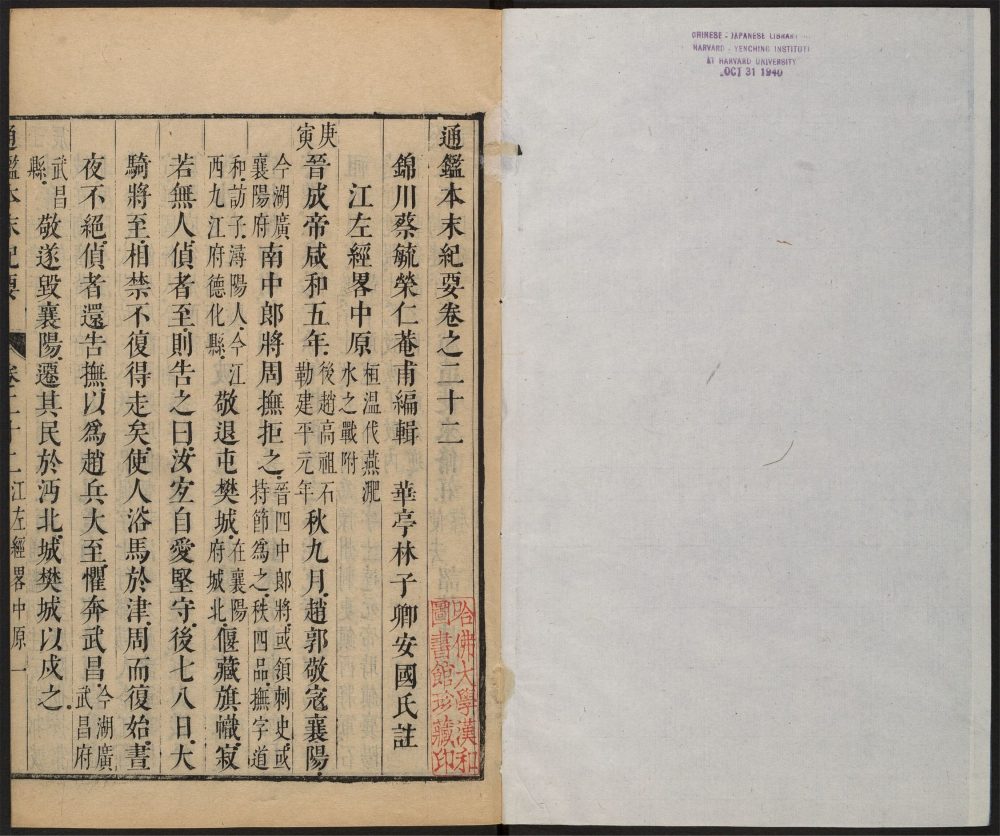 通鑑本末紀要卷之二十二
錦川蔡毓榮仁菴甫編輯　華亭林子卿安國氏註
江左經畧中原桓温伐燕淝水之戰附
庚寅晉成帝咸和五年後趙高祖石勒建平元年秋九月趙郭敬寇襄陽
今湖廣襄陽府南中郎將周撫拒之晉四中郎將或領刺史或持節爲之秩四品撫字道
和訪子潯陽人今江西九江府德化縣敬退屯樊城在襄陽府城北偃藏旗幟寂
若無人偵者至則告之曰汝宐自愛堅守後七八日大
騎將至相禁不復得走矣使人浴馬於津周而復始晝
夜不絕偵者還告撫以爲趙兵大至懼奔武昌今湖廣武昌府
武昌縣敬遂毀襄陽遷其民於沔北城樊城以戍之
通鑑本末紀要　卷二十二江左經畧中原　一
哈佛大學漢和
圖書館珍藏印
CHINESE - JAPANESE LIBRARY
HARVARD - YENCHING INSTITUTE
AT HARVARD UNIVERSITY
OCT 31 1940